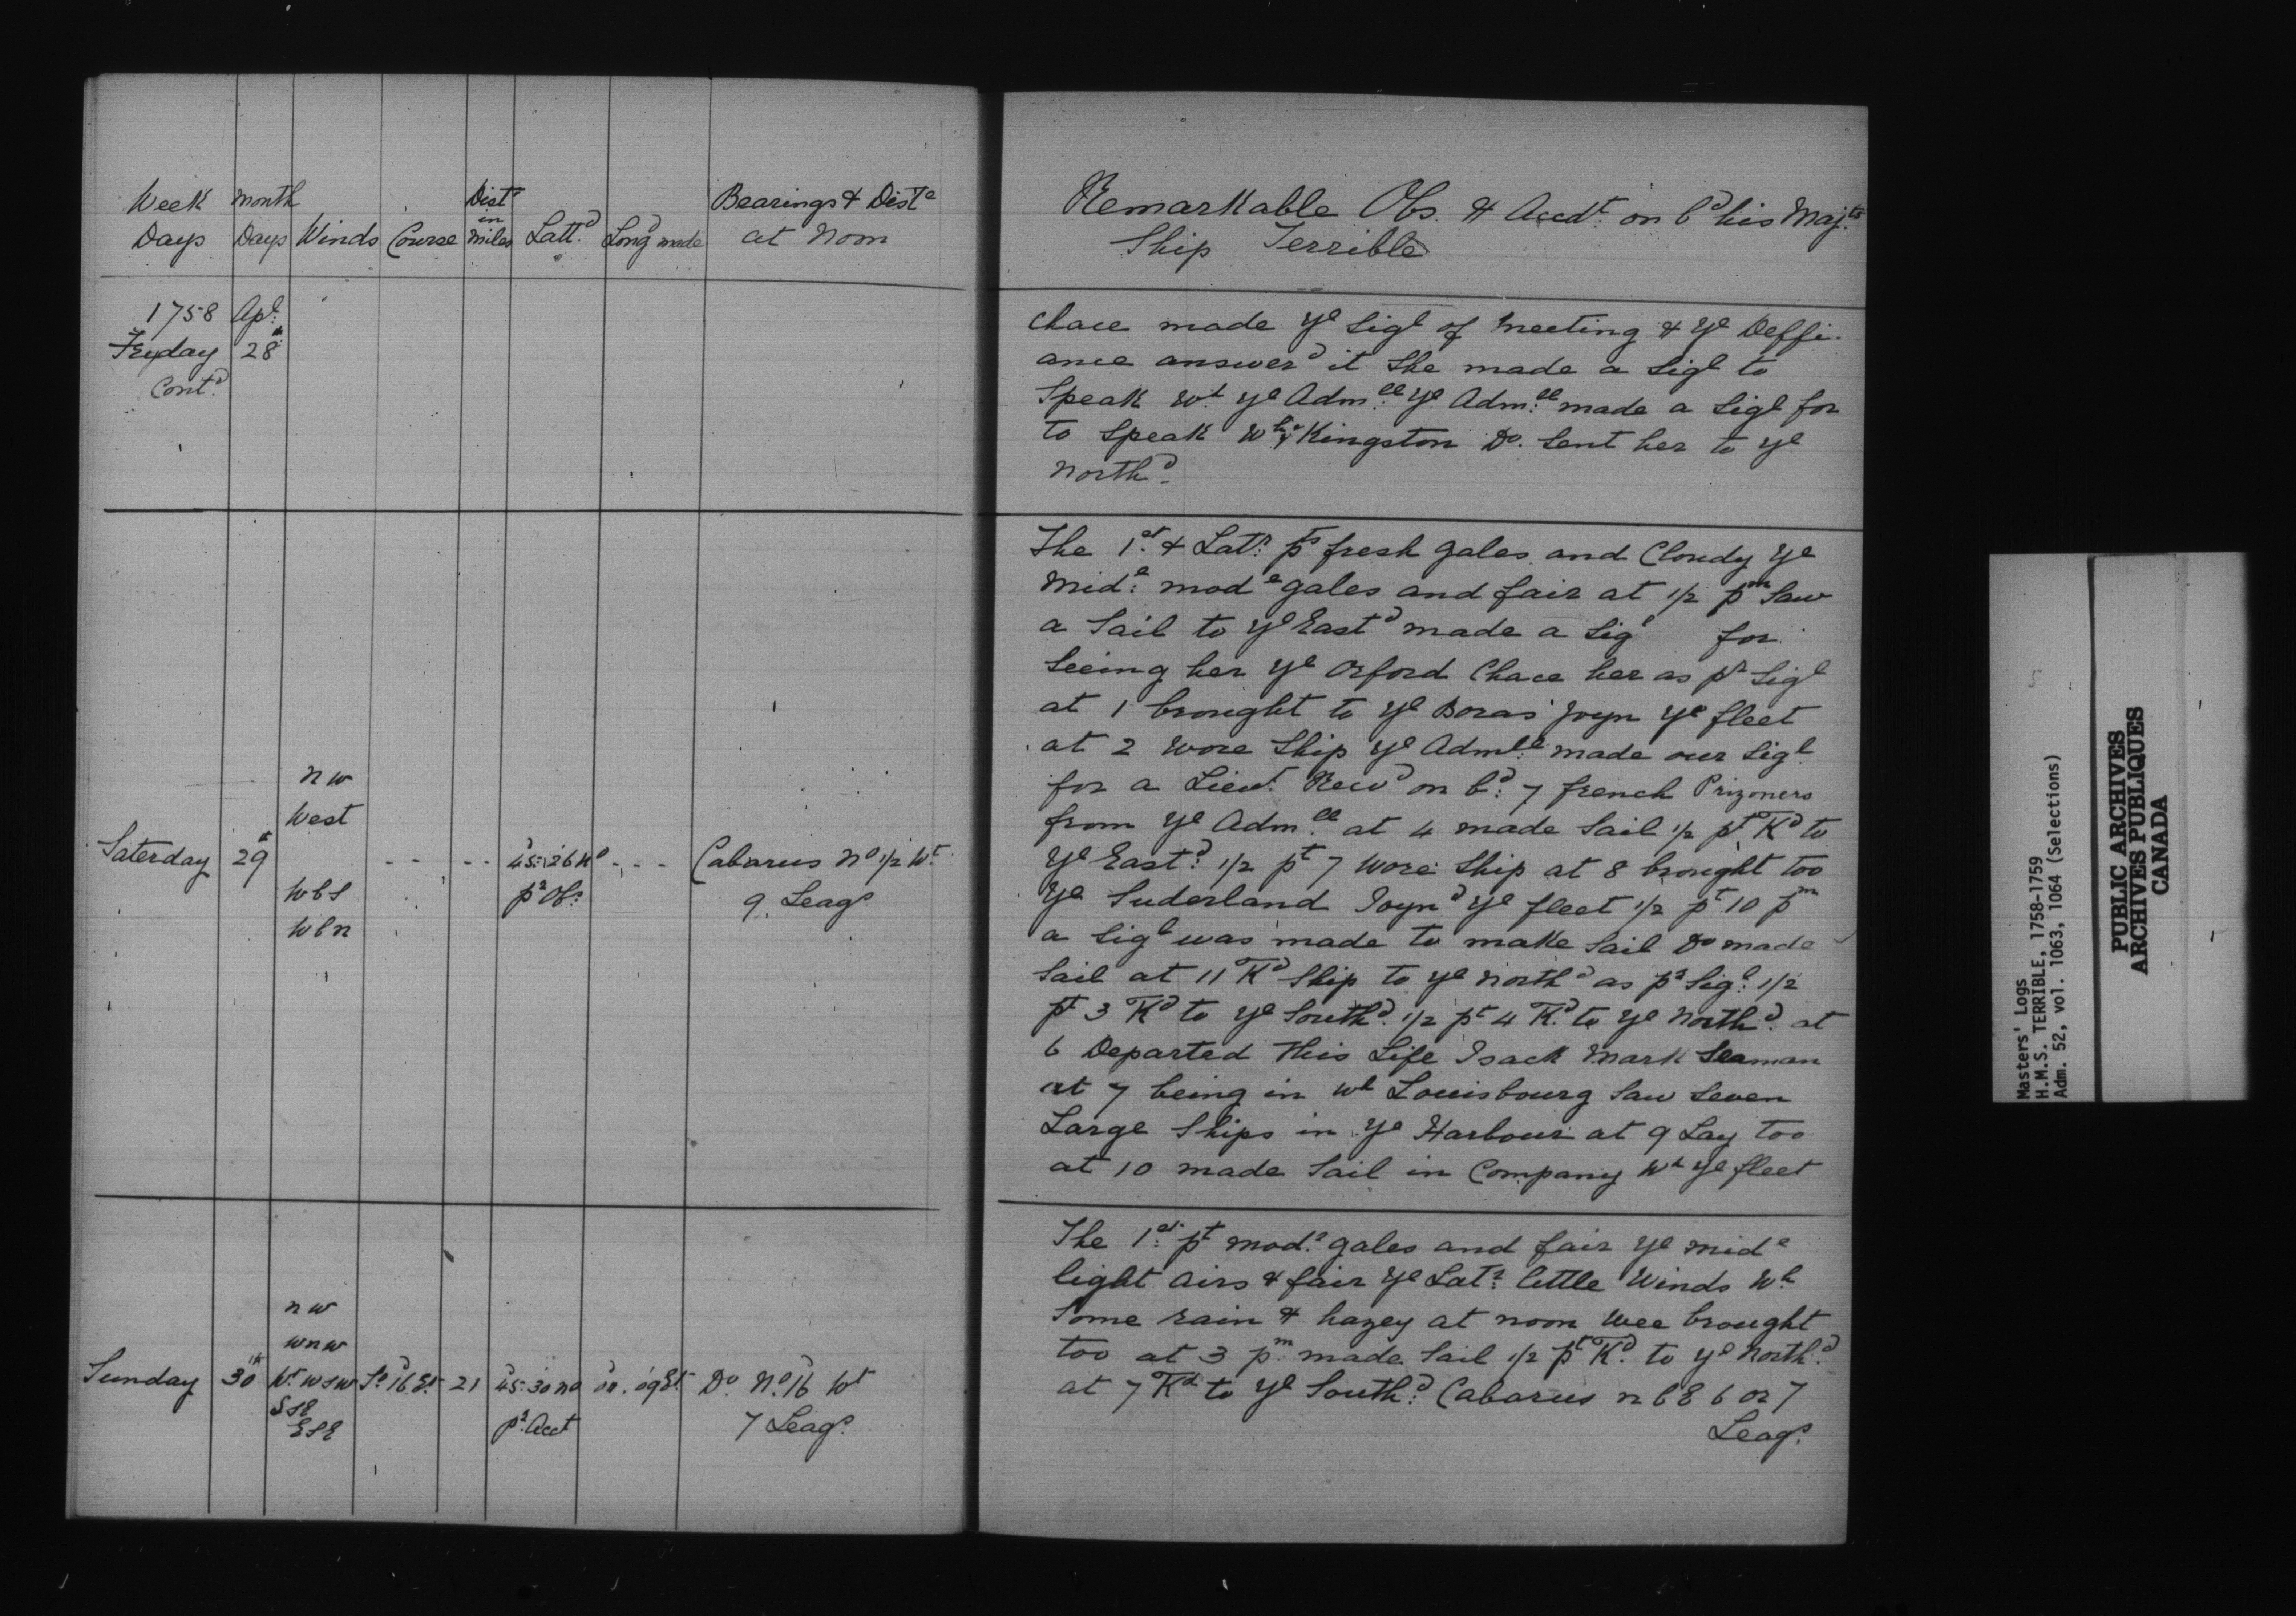 Week Days
Month Days
Winds
Course
Dist.e in miles
Latt.d
Long.d made
Bearings & Dist.e at Noon
1758 Apl:
Fryday 28th
Cont.d
n w
West
Saterday 29th - - - - 45:26 No - - - Cabarus No 1/2 Wt
W b S
pr Obs:
9 Leags
W b n
n w
w n w
Sunday 30th Wt W S W So 16 Et 21 45:30 no 00.09 Et Do No 16 Wt
S S E
E S E
pr Acct
7 Leags
Remarkable Obs. & Accdt. on bd his Majts
Ship Terrible
Chace made ye Sigl of meeting & ye Deffi-
ance answerd it She made a Sigl to
Speak wt ye Adm:ll ye Adm:ll made a Sigl for
to Speak wh ye Kingston Do. Sent her to ye
Northd.
The 1st & Latr: pts fresh gales and Cloudy ye
Mid:e mode gales and fair at 1/2 pm Saw
a Sail to ye Eastd made a Sigl for
Seeing her ye Orford Chace her as pr Sigl
at 1 brought to ye Boras joyn ye fleet
at 2 wore Ship ye Admll made our Sigl
for a Lieut. Recd on bd: 7 french Prizoners
from ye Adm.ll at 4 made Sail 1/2 pt Kd to
Ye East:d 1/2 pt 7 wore Ship at 8 brought too
Ye Suderland Joynd ye fleet 1/2 pt 10 pm
a Sigl was made to make Sail Do made
Sail at 11 Kd Ship to ye northd as pr Sigl: 1/2
pt 3 Kd to ye Southd. 1/2 pt 4 Kd. to ye Northd. at
6 Departed this Life Isack Mark Seaman
at 7 being in wh Louisbourg Saw Seven
Large Ships in ye Harbour at 9 Lay too
at 10 made Sail in Company Wh ye fleet
The 1st: pt mod.e gales and fair ye mide
light airs & fair ye Latr: little Winds Wh
Some rain & hazey at noon wee brought
too at 3 pm made Sail 1/2 pt Kd. to ye North:d
at 7 Kd to ye South:d Cabarus n b E 6 or 7
Leags.
Masters' Logs
H.M.S. TERRIBLE, 1758-1759
Adm. 52, vol. 1063, 1064 (Selections)
PUBLIC ARCHIVES
ARCHIVES PUBLIQUES
CANADA